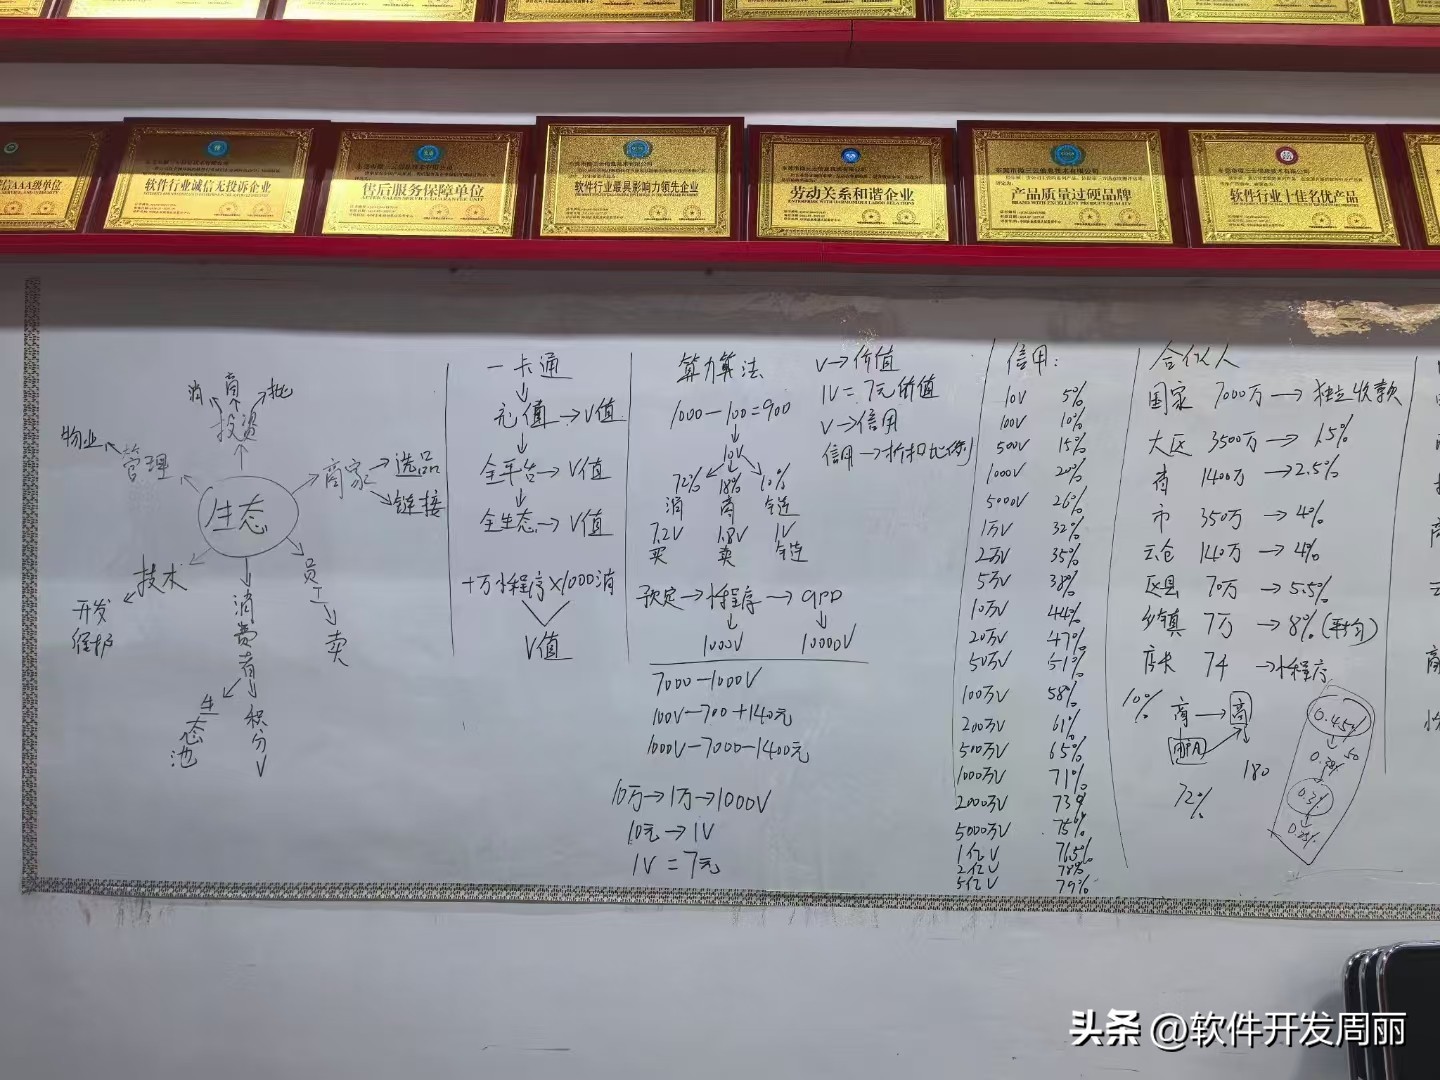 信AAA级单位
软件行业诚信无投诉企业
售后服务保障单位
软件行业最具影响力领先企业
劳动关系和谐企业
ENTERPRISE WITH HARMONIOUS LABOR RELATIONS
产品质量过硬品牌
BRAND WITH EXCELLENT PRODUCT QUALITY
软件行业十佳名优产品
消 商
投资
物业
管理
商家
选品
链接
生态
技术
开发
维护
员工
卖
消费者
生态池
积分V
一卡通
充值→V值
全平台→V值
全生态→V值
十万小程序×1000消
V值
算力算法
1000-100=900
10V
72% 18% 10%
消 商 链
7.2V 1.8V 1V
买 卖 链
预定→小程序→app
1000V 10000V
7000-1000V
100V-700+140元
1000V-7000-1400元
10万→1万→1000V
10元→1V
1V=7元
V→价值
1V=7元价值
V→信用
信用→折扣比例
信用:
10V 5%
100V 10%
500V 15%
1000V 20%
5000V 26%
1万V 32%
2万V 35%
5万V 38%
10万V 44%
20万V 47%
50万V 51%
100万V 58%
200万V 61%
500万V 65%
1000万V 71%
2000万V 73%
5000万V 75%
1亿V 76.5%
2亿V 78%
5亿V 79%
合伙人
国家 7000万→独立收款
大区 3500万→1.5%
省 1400万→2.5%
市 350万→4%
云仓 140万→4%
区县 70万→5.5%
乡镇 7万→8%(平均)
店长 74→小程序
10% 商→商
180
72%
0.45%
0.3%
头条 @软件开发周丽